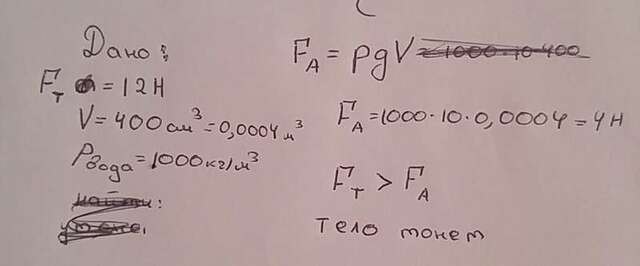 Дано:
F_T = 12 Н
V = 400 см³ = 0,0004 м³
ρ вода = 1000 кг/м³
F_A = ρgV
F_A = 1000 · 10 · 0,0004 = 4 Н
F_T > F_A
Тело тонет